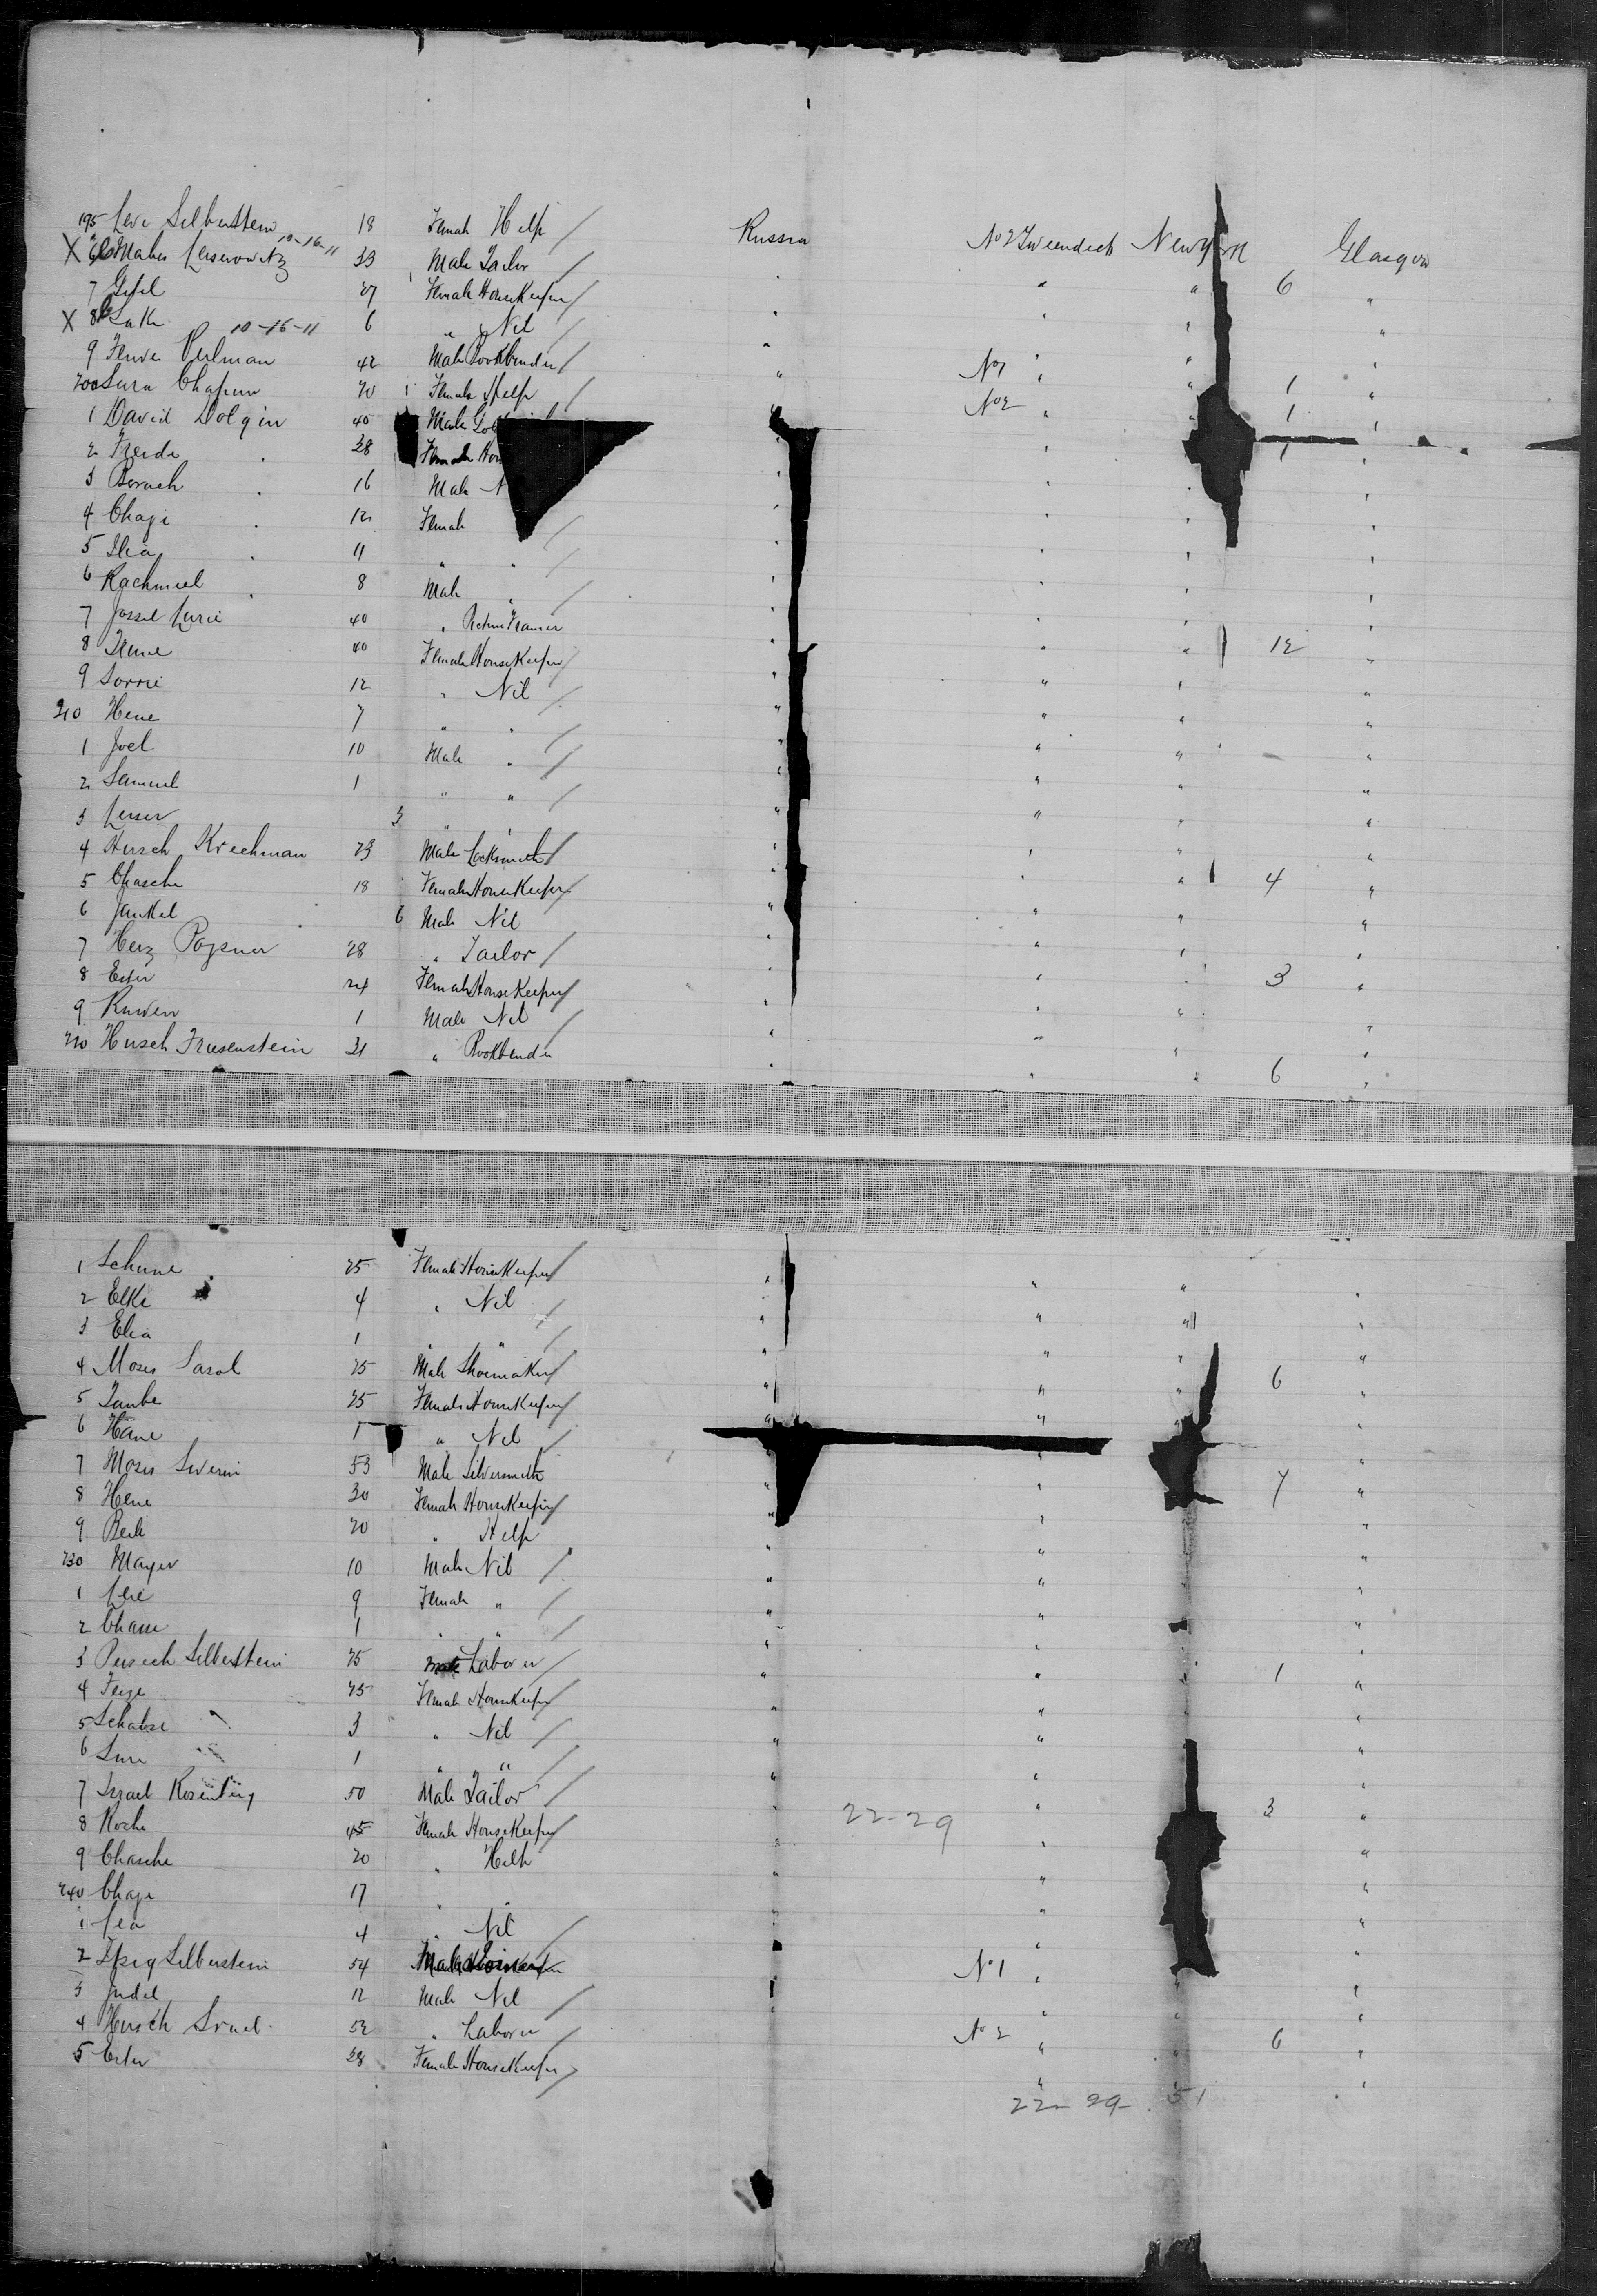 195 Leve Silberstein 18 Female Help / Russia No 2 Tweendeck New York Glasgow
X 6 Maher Leiserowitz 10-16-11 33 Male Tailor / " " " 6 "
7 Gesel 27 Female HouseKeeper / " " " "
X 8 10-16-11 6 " Nil / " " " "
9 Perlman 42 Male Bookbinder / " No 1 " " 1 "
200 Sara 20 Female Help / " No 2 " " 1 "
1 David Dolgin 40 Male " " " 1 "
2 Freide " 38 Female " " " "
3 Borach " 16 Male " " " "
4 Chaje " 12 Female / " " " "
5 " 11 " " / " " " "
6 Rachmiel " 8 Male " / " " " "
7 Jossel Lurie 40 " Picture Framer " " " 12 "
8 40 Female HouseKeeper / " " " "
9 Sorrie 12 " Nil / " " " "
210 Hene 7 " " / " " " "
1 Joel 10 Male " / " " " "
2 Samuel 1 " " / " " " "
3 Leiser 3 " " " " " "
4 Hirsch Krechman 23 Male Locksmith / " " " 4 "
5 Chasche 18 Female HouseKeeper / " " " "
6 Jankel " 6 Male Nil " " " "
7 Herz 28 " Tailor / " " " 3 "
8 Ester 24 Female HouseKeeper / " " " "
9 Ruwen 1 Male Nil / " " " "
220 Hirsch Friesenstein 31 " Bookbinder " " " 6 "
1 Schune 25 Female HouseKeeper / " " " "
2 Elke 4 " Nil / " " " "
3 Elia 1 " " / " " " "
4 Moses Sasol 25 Male Shoemaker / " " " 6 "
5 Taube 25 Female HouseKeeper / " " " "
6 Hane 1 " Nil / " " " "
7 Moses Swerin 53 Male Silversmith " " " 7 "
8 Hene 30 Female HouseKeeping / " " " "
9 20 " Help " " " "
230 Mayer 10 Male Nil / " " " "
1 Lee 9 Female " / " " " "
2 Chane 1 " " / " " " "
3 Silberstein 25 Male Laborer / " " " 1 "
4 Feige 25 Female HouseKeeper / " " " "
5 Schabse " 3 " Nil / " " " "
6 " 1 " " / " " " "
7 Israel 50 Male Tailor / " 22-29 " 3 "
8 Roche 45 Female HouseKeeper / " " "
9 Chasche 20 " Help " " "
240 Chaje 17 " " " " "
1 Lea 4 " Nil / " " "
2 Silberstein 54 Male " No 1 " " "
3 Judel 12 Male Nil / " " " "
4 Hirsch 52 " Laborer / No 2 " " 6 "
5 Ester 38 Female HouseKeeper / " " "
22-29 51